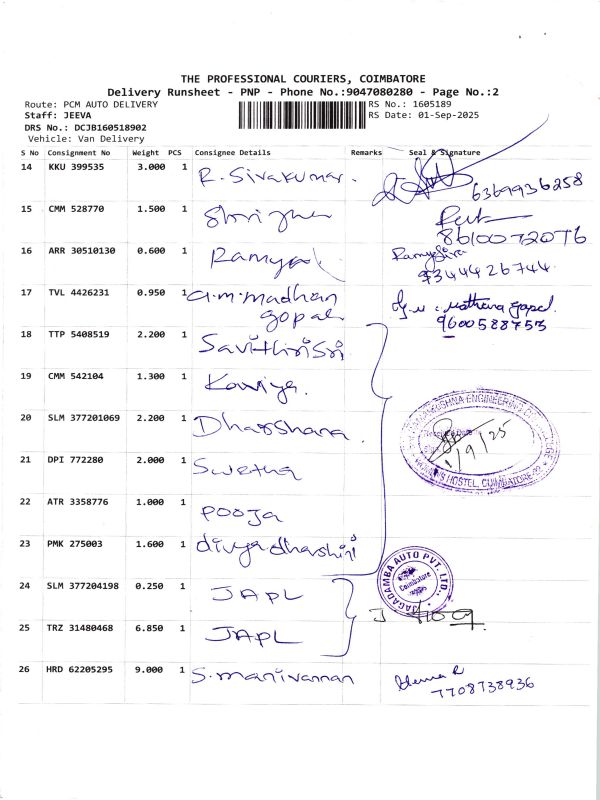 THE PROFESSIONAL COURIERS, COIMBATORE
Delivery Runsheet - PNP - Phone No.:9047080280 - Page No.:2
Route: PCM AUTO DELIVERY
Staff: JEEVA
DRS No.: DCJB160518902
Vehicle: Van Delivery
RS No.: 1605189
RS Date: 01-Sep-2025
S No Consignment No Weight PCS Consignee Details Remarks Seal & Signature
14 KKU 399535 3.000 1 R. Sivakumar. 6369936258
15 CMM 528770 1.500 1 8610072076
16 ARR 30510130 0.600 1 Ramya 9344426744
17 TVL 4426231 0.950 1 a.m.madhan
gopal 9600588753
18 TTP 5408519 2.200 1 SavithiriSri
19 CMM 542104 1.300 1 Kaviya.
20 SLM 377201069 2.200 1 Dharshana.
21 DPI 772280 2.000 1 Swetha
22 ATR 3358776 1.000 1 POOJA
23 PMK 275003 1.600 1 divyadharshini
1/9/25
HOSTEL, COIMBATORE
24 SLM 377204198 0.250 1 JAPL
JAGADAMBA AUTO PVT. LTD.
Coimbatore
25 TRZ 31480468 6.850 1 JAPL
26 HRD 62205295 9.000 1 S.manivannan 7708738936